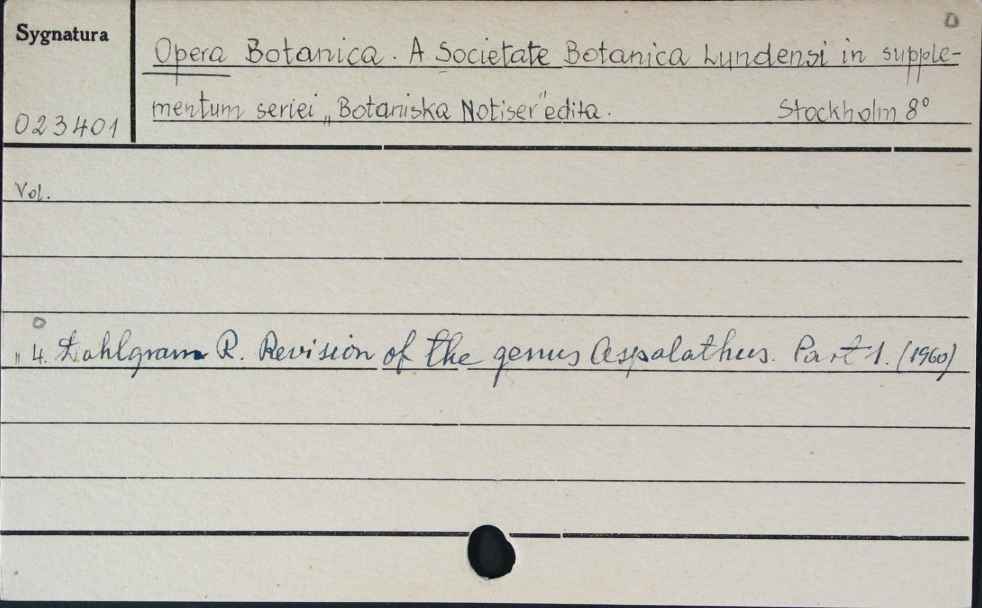 D
Sygnatura
Opera Botanica. A Societate Botanica Lundensi in supple-
023401
mentum seriei „Botaniska Notiser" edita. Stockholm 8°
Vol.
D
" 4. Dahlgram R. Revision of the genus Aspalathus. Part 1. (1960)